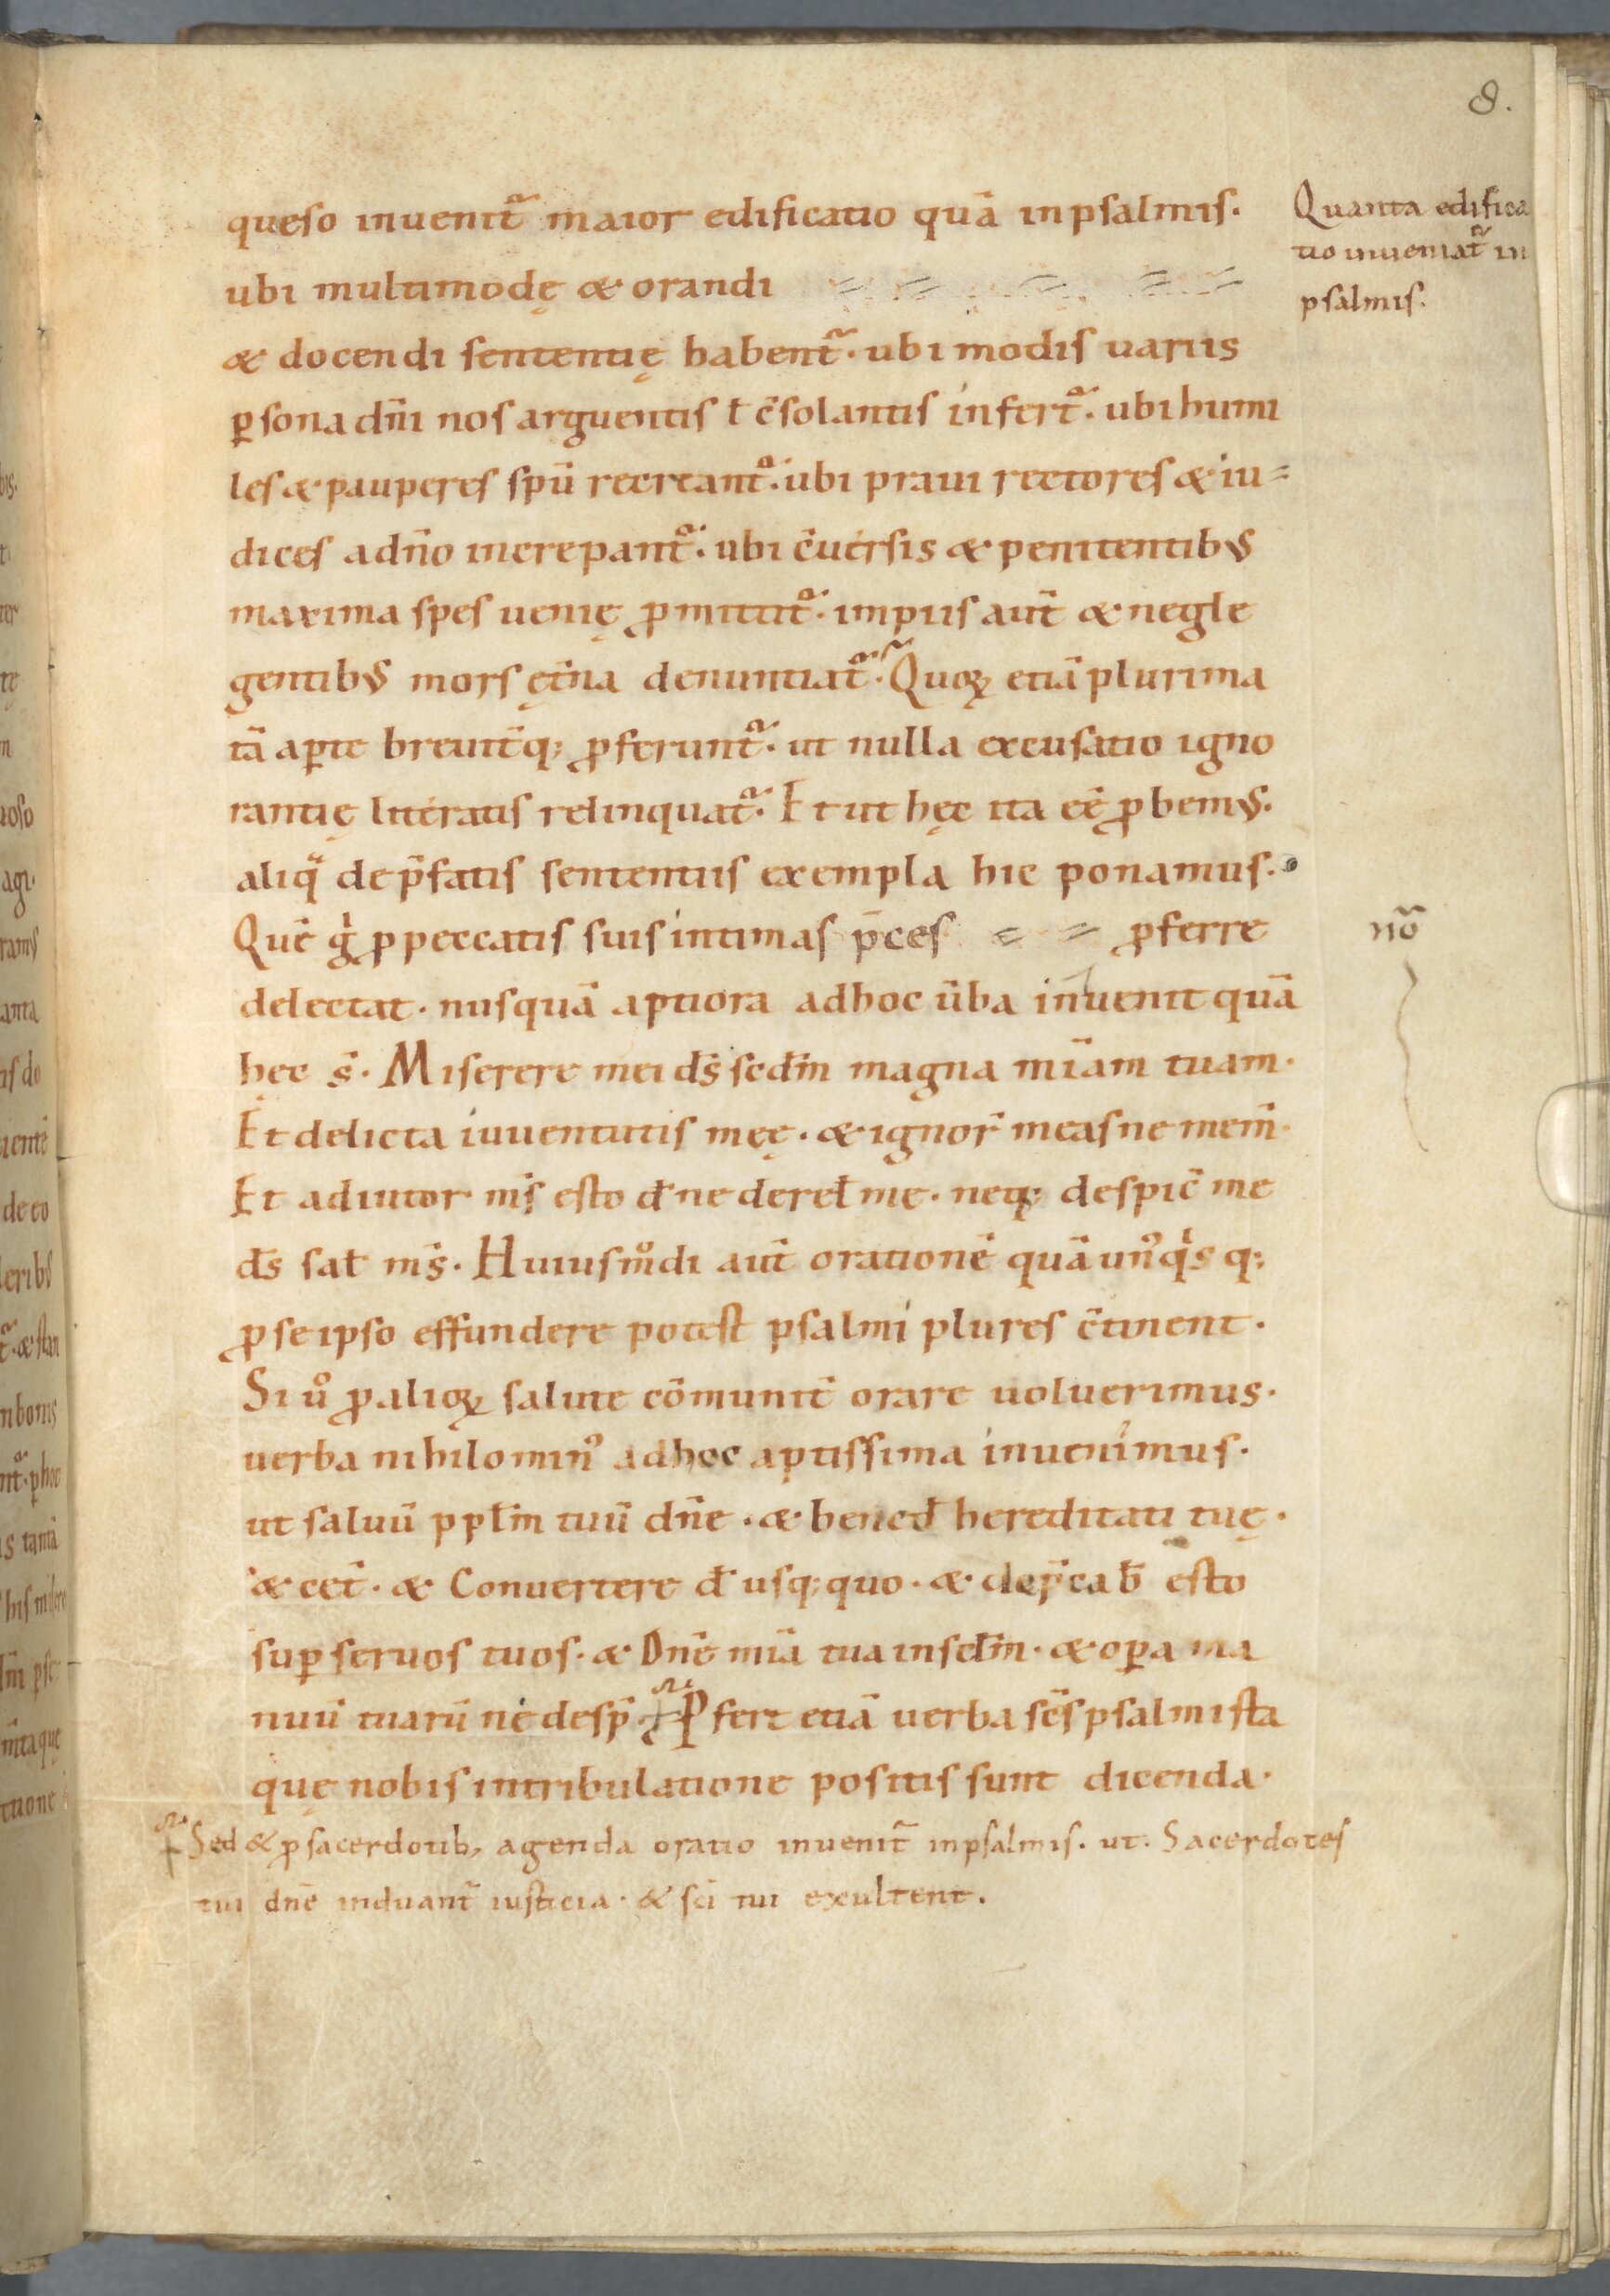 8.
queso inuenit᷑ maior edificatio quā inpsalmis.
Quanta edifica
tio inueniat᷑ in
psalmis.
ubi multimodę & orandi
& docendi sententię habent᷑. ubi modis uariis
ꝑsona dn̄i nos arguentis ł c̄solantis infert᷑. ubi humi
les & pauperes spū recreant᷑. ubi praui rectores & iu=
dices adn̄o increpant᷑. ubi c̄uersis & penitentibꝰ
maxima spes uenię ꝓmittit᷑. impiis aut̄ & negle
gentibꝰ mors ęt̄na denuntiat᷑. Quoꝝ etiā plurima
tā aꝑte breuit̄q; ꝓferunt᷑. ut nulla excusatio igno
rantię literatis relinquat᷑. Et ut hęc ita eē ꝓbemꝰ.
aliq̄ dep̄fatis sententiis exempla hic ponamus.
Quē g̊ ꝓ peccatis suis intimas p̄ces = = ꝓferre
nō
delectat. nusquā aptiora adhoc ūba inuenit quā
hęc s̄. Miserere mei ds̄ scdm̄ magna mīam tuam.
Et delicta iuuentutis meę. & ignor̄ meas ne mem̄.
Et adiutor ms̄ esto dn̄e derel̄ me. neq; despic̄ me
ds̄ sal̄ ms̄. Huiusmodi aut̄ orationē quā unꝰqͥsq;
ꝓ se ipso effundere potest psalmi plures c̄tinent.
Si uº ꝓ alioꝝ salute cōmunit̄ orare uoluerimus.
uerba nihilominꝰ adhoc aptissima inuenimus.
ut saluū ppłm tuū dn̄e. & bened̄ hereditati tuę.
& cet̄. & Conuertere d̄ usq; quo. & dep̄cab̄ esto
suꝑ seruos tuos. & Dn̄e mīa tua inscłm. & oꝑa ma
nuū tuarū ne desp̄. Ꝓfert etiā uerba sc̄s psalmista
quę nobis intribulatione positis sunt dicenda.
Sed & ꝓ sacerdotib; agenda oratio inuenit᷑ inpsalmis. ut. Sacerdotes
tui dn̄e induant᷑ iusticia. & sc̄i tui exultent.